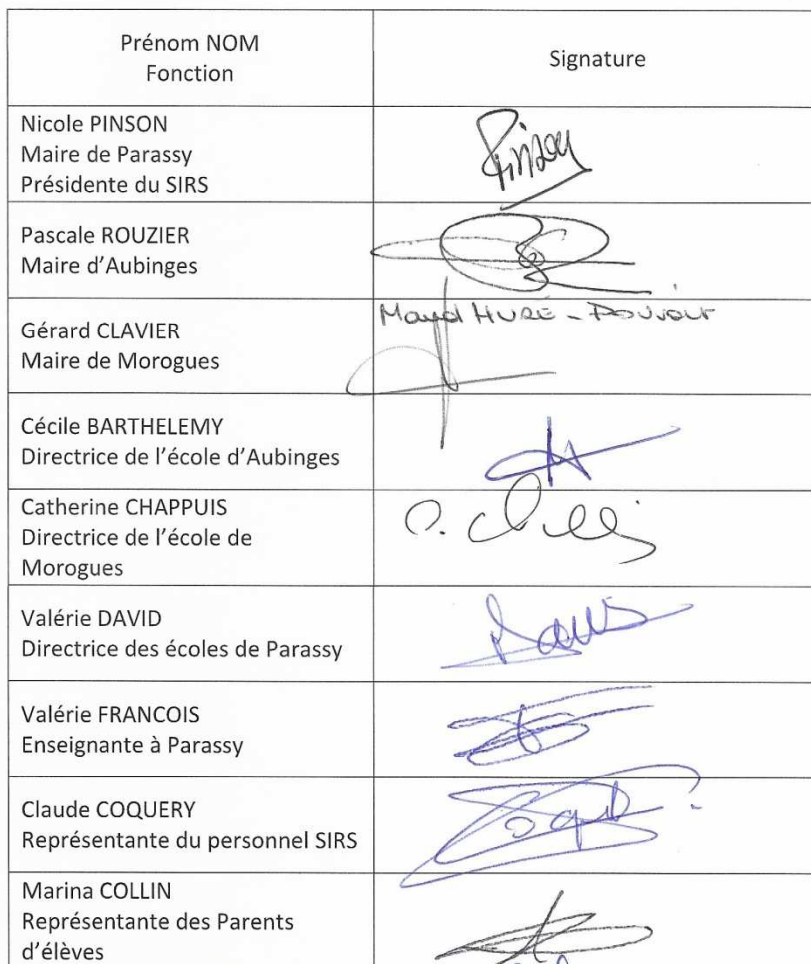 Prénom NOM
Fonction
Signature
Nicole PINSON
Maire de Parassy
Présidente du SIRS
Pinson
Pascale ROUZIER
Maire d'Aubinges
Gérard CLAVIER
Maire de Morogues
HURE - Pouvoir
Cécile BARTHELEMY
Directrice de l'école d'Aubinges
Catherine CHAPPUIS
Directrice de l'école de
Morogues
Valérie DAVID
Directrice des écoles de Parassy
Valérie FRANCOIS
Enseignante à Parassy
Claude COQUERY
Représentante du personnel SIRS
Marina COLLIN
Représentante des Parents
d'élèves